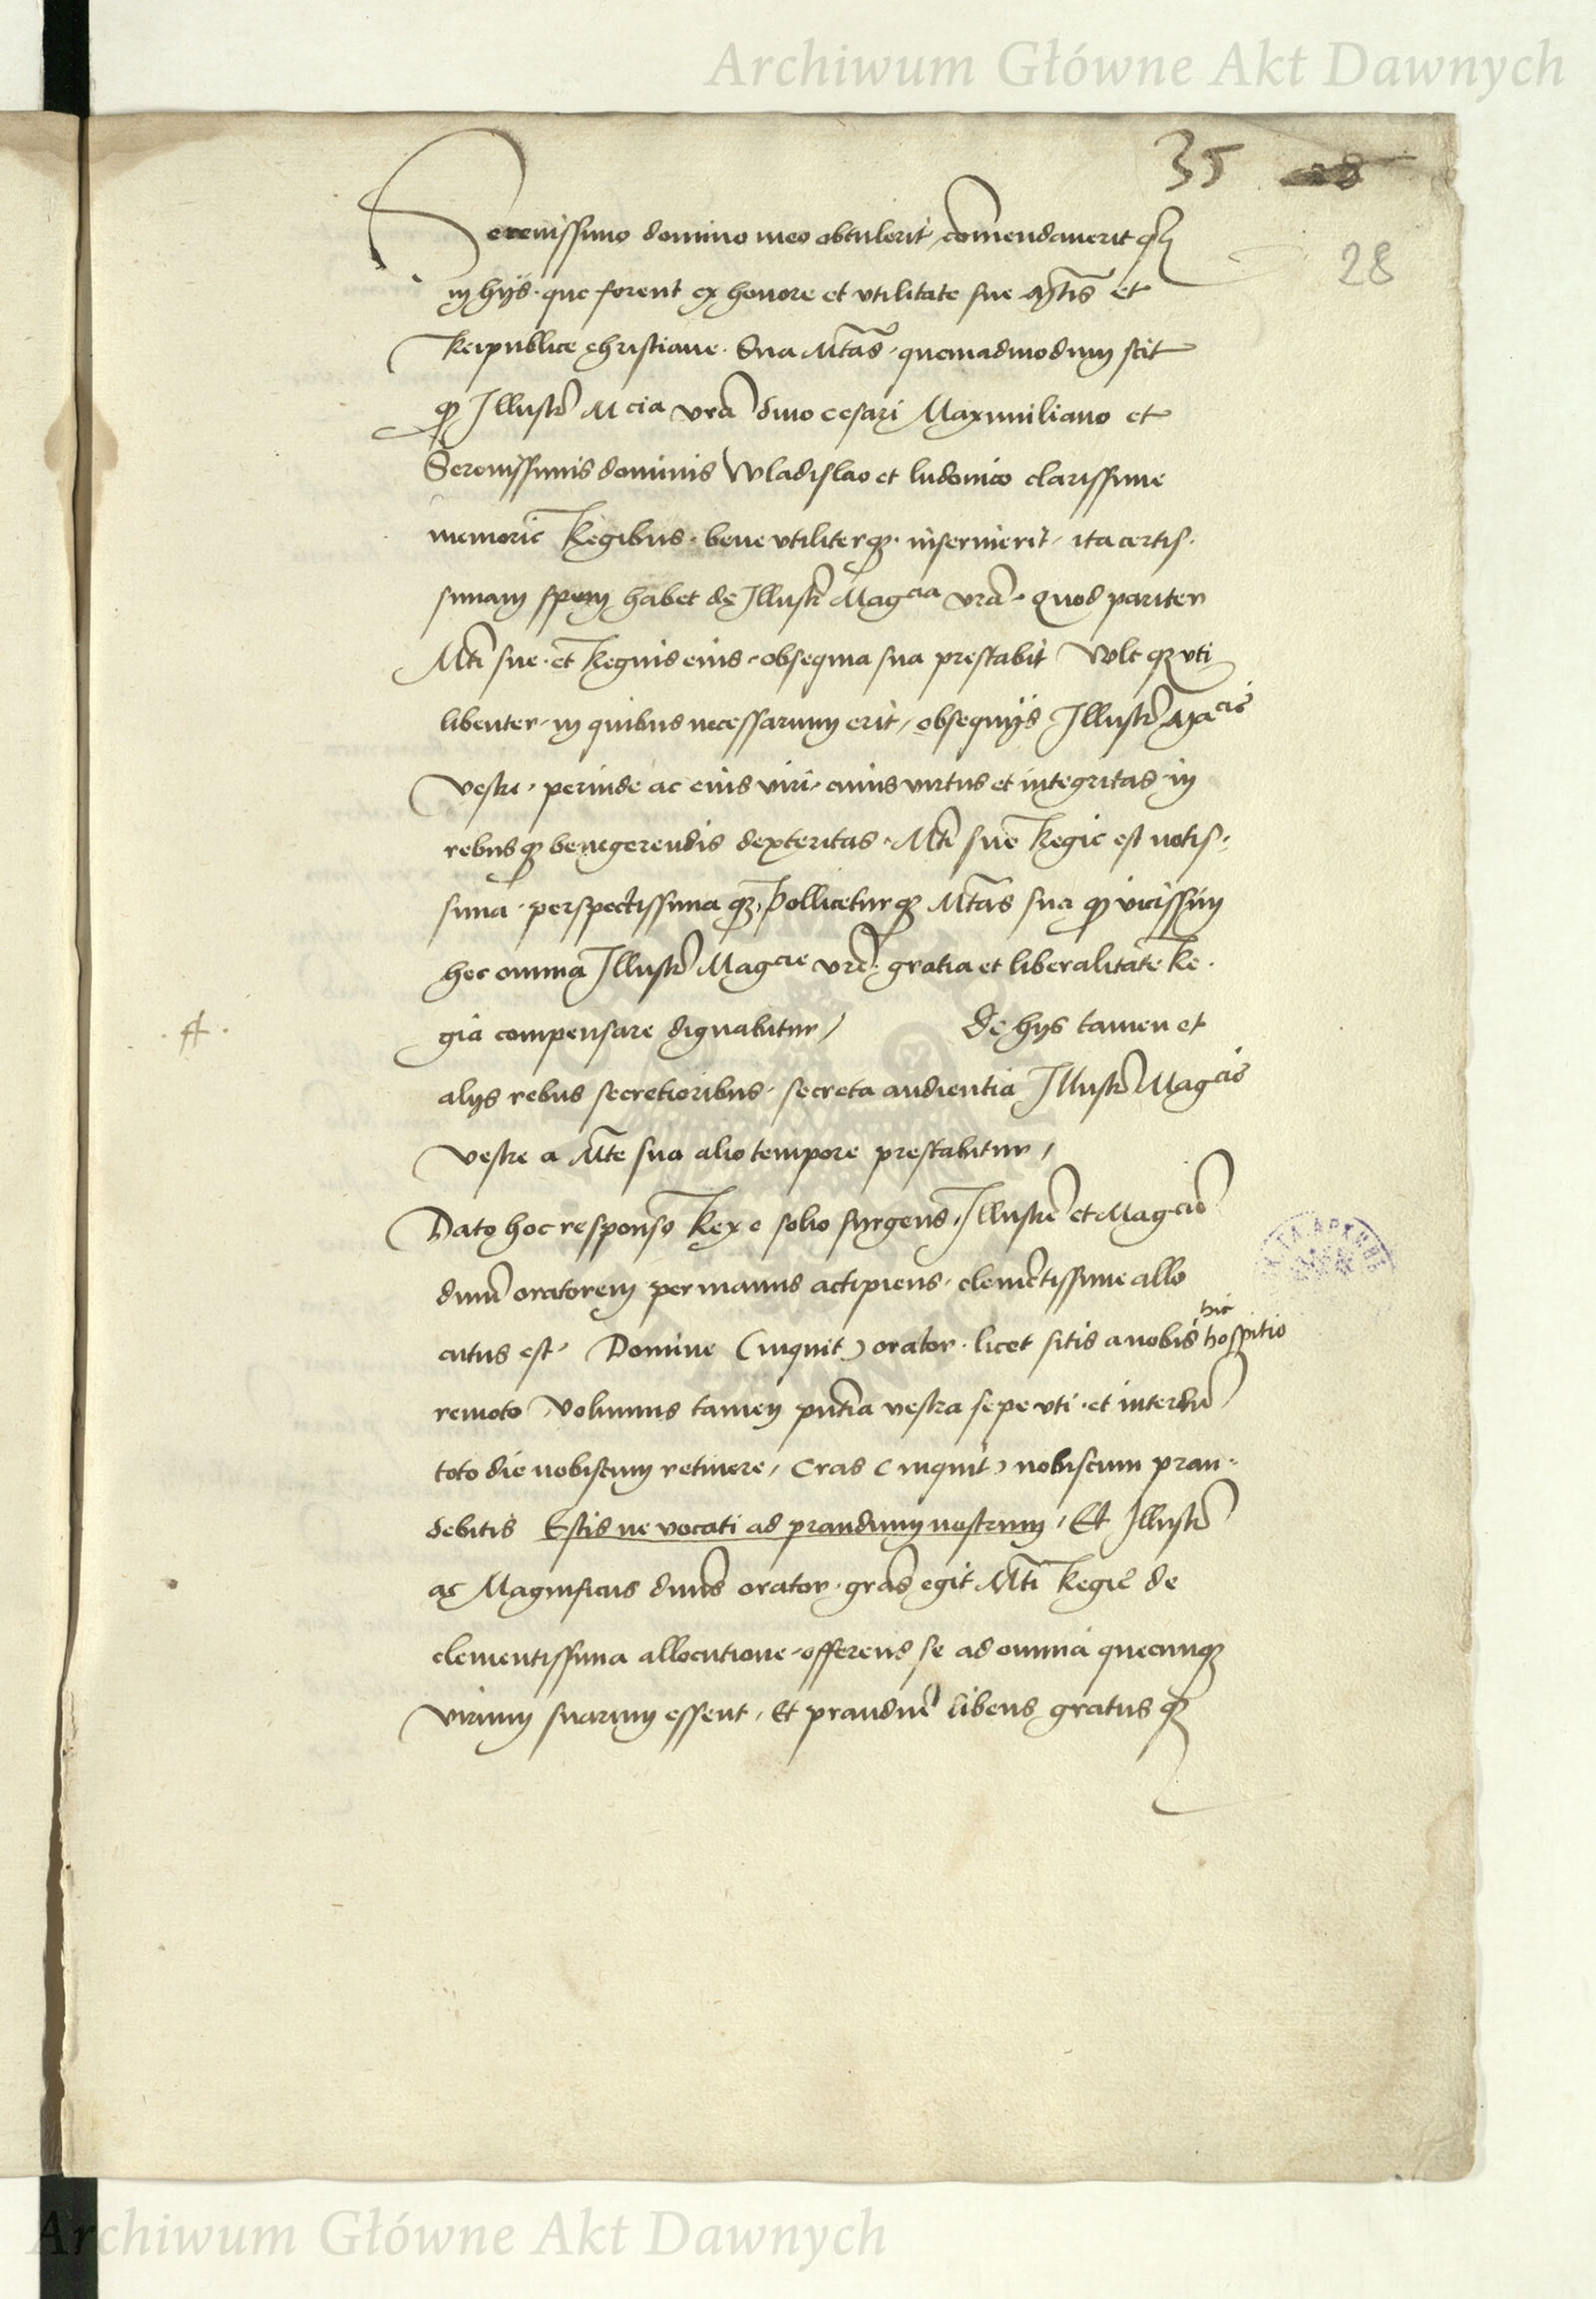 Archiwum Główne Akt Dawnych
35 28
28
Serenissimo domino meo obtulerit, com̄endaverit q̄
in hijs · que forent ex honore et utilitate sue M̃tis et
Reipublice christiane · Sua M̃tas · quemadmodum scit
q̄ Illustr̃ Mcia vrã dño cesari Maximiliano et
Serenissimis dominis Wladislao et ludovico clarissime
memorie Regibus · bene utiliterq̃ · inservierit, ita certis·
simam spem habet de Illustr̃ Magcia vrã · Quod pariter
M̃ti sue · et Regnis eius · obsequia sua prestabit Vultq̃ uti
libenter, in quibus necessarium erit, obsequijs Illustr̃ Macie
vestre · perinde ac eius viri · cuius virtus et integritas in
rebusq̃ benegerendis dexteritas · M̃ti sue Regie est notis·
sima · perspectissima q̃, Polliceturq̃ M̃tas sua q̄ vicissim
hec omnia Illustr̃ Magcie vrẽ · gratia et liberalitate Re·
gia compensare dignabitur, De hijs tamen et
alijs rebus secretioribus, secreta audientia Illustr̃ Magcie
vestre a M̃te sua alio tempore prestabitur,
Dato hoc responso Rex e solio surgens, Illustrẽ et Magcũ
dnũ oratorem per manus accipiens, clemẽtissime allo
cutus est, Domine (inquit) orator · licet sitis a nobis hic hospitio
remoto Volumus tamen pñtia vestra sepe uti · et interdũ
toto die nobiscum retinere, Cras (inquit) nobiscum pran-
debitis Estis ne vocati ad prandium nostrum, Et Illustr̃
ac Magnificus dñus orator · grãs egit M̃ti Regie de
clementissima allocutione · offerens se ad omnia quecunq̃
virium suarum essent, Et prandiũ libens gratus q̃
Archiwum Główne Akt Dawnych